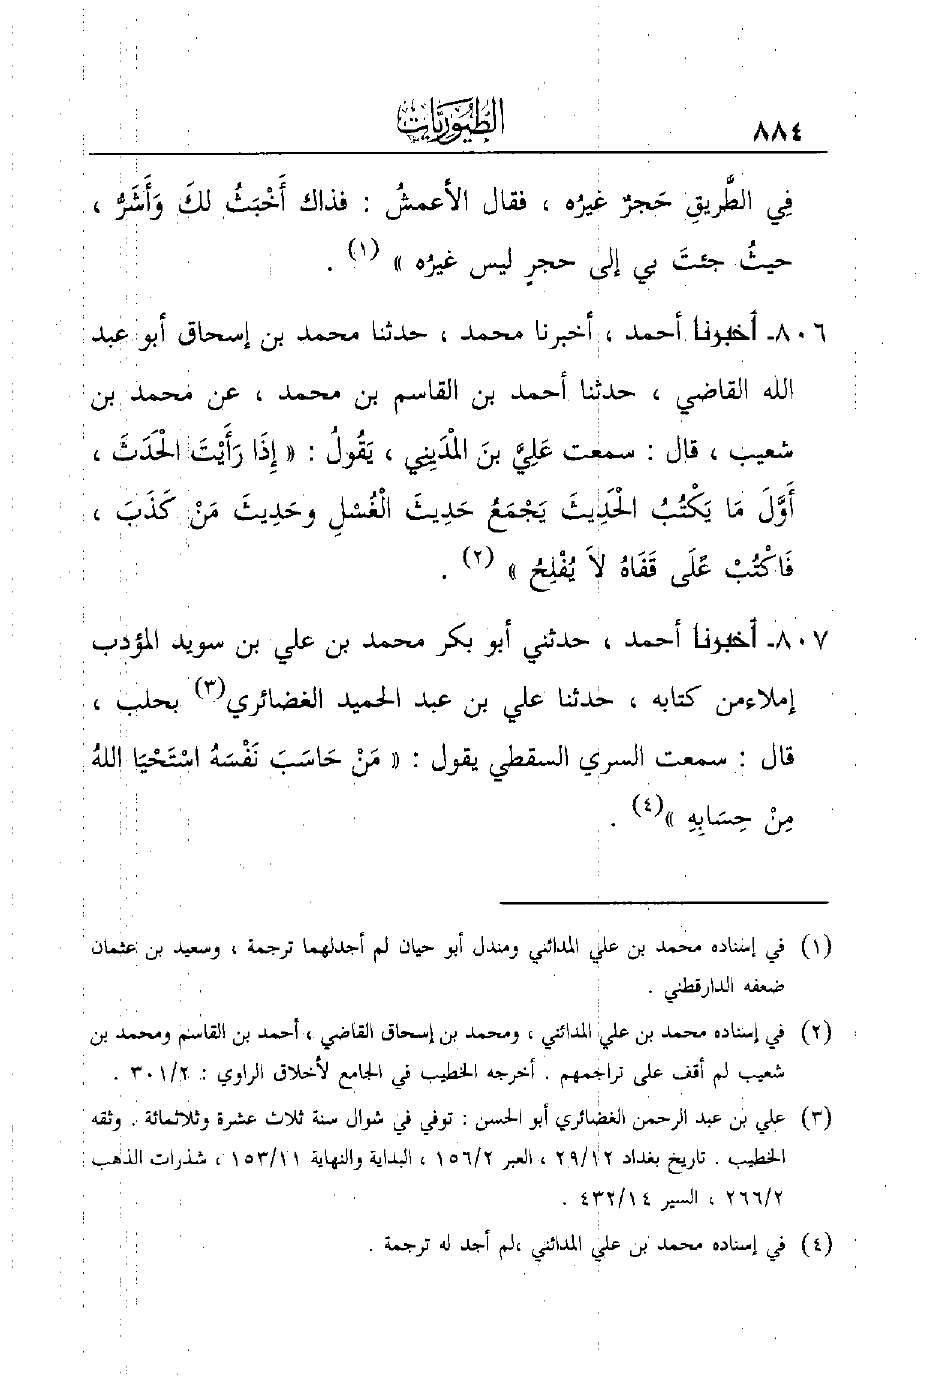 ٨٨٤
الطُّيُورِيَّات
فِي الطَّريقِ حَجرٌ غيرُه ، فقال الأعمشُ : فذاك أَخْبَثُ لكَ وَأَشَرُّ ،
حيثُ جئتَ بي إلى حجرٍ ليس غيرُه » (١) .
٨٠٦- أخبرنا أحمد ، أخبرنا محمد ، حدثنا محمد بن إسحاق أبو عبد
الله القاضي ، حدثنا أحمد بن القاسم بن محمد ، عن محمد بن
شعيب ، قال : سمعت عَلِيَّ بنَ الْمَدِينِي ، يَقُولُ : « إِذَا رَأَيْتَ الْحَدَثَ ،
أَوَّلَ مَا يَكْتُبُ الْحَدِيثَ يَجْمَعُ حَدِيثَ الْغُسْلِ وحَدِيثَ مَنْ كَذَبَ ،
فَاكْتُبْ عَلَى قَفَاهُ لاَ يُفْلِحُ » (٢) .
٨٠٧- أخبرنا أحمد ، حدثني أبو بكر محمد بن علي بن سويد المؤدب
إملاءمن كتابه ، حدثنا علي بن عبد الحميد الغضائري(٣) بحلب ،
قال : سمعت السري السقطي يقول : « مَنْ حَاسَبَ نَفْسَهُ اسْتَحْيَا اللهُ
مِنْ حِسَابِهِ »(٤) .
(١) في إسناده محمد بن علي المدائني ومندل أبو حيان لم أجدلهما ترجمة ، وسعيد بن عثمان
ضعفه الدارقطني .
(٢) في إسناده محمد بن علي المدائني ، ومحمد بن إسحاق القاضي ، أحمد بن القاسم ومحمد بن
شعيب لم أقف على تراجمهم . أخرجه الخطيب في الجامع لأخلاق الراوي : ٣٠١/٢ .
(٣) علي بن عبد الرحمن الغضائري أبو الحسن : توفي في شوال سنة ثلاث عشرة وثلاثمائة . وثقه
الخطيب . تاريخ بغداد ٢٩/١٢ ، العبر ١٥٦/٢ ، البداية والنهاية ١٥٣/١١ ، شذرات الذهب
٢٦٦/٢ ، السير ٤٣٢/١٤ .
(٤) في إسناده محمد بن علي المدائني ،لم أجد له ترجمة .